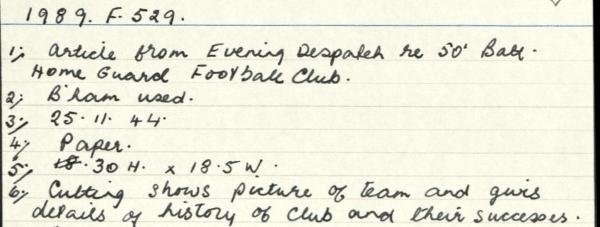 1989. F. 529.
1; article from Evening Despatch re 50' Batt.
Home Guard Football Club.
2; B'ham used.
3; 25. 11. 44.
4; Paper.
5; 18. 30 H. x 18.5 W.
6; Cutting shows picture of team and givis
details of history of Club and their successes.